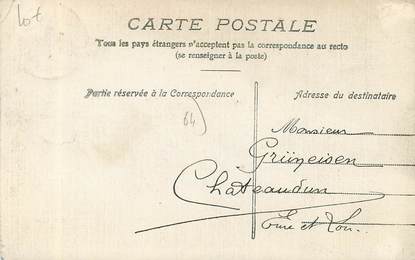 Lot
CARTE POSTALE
Tous les pays étrangers n'acceptent pas la correspondance au recto
(se renseigner à la poste)
Partie réservée à la Correspondance
Adresse du destinataire
64
Monsieur
Grüneisen
Châteaudun
Eure et Loir.